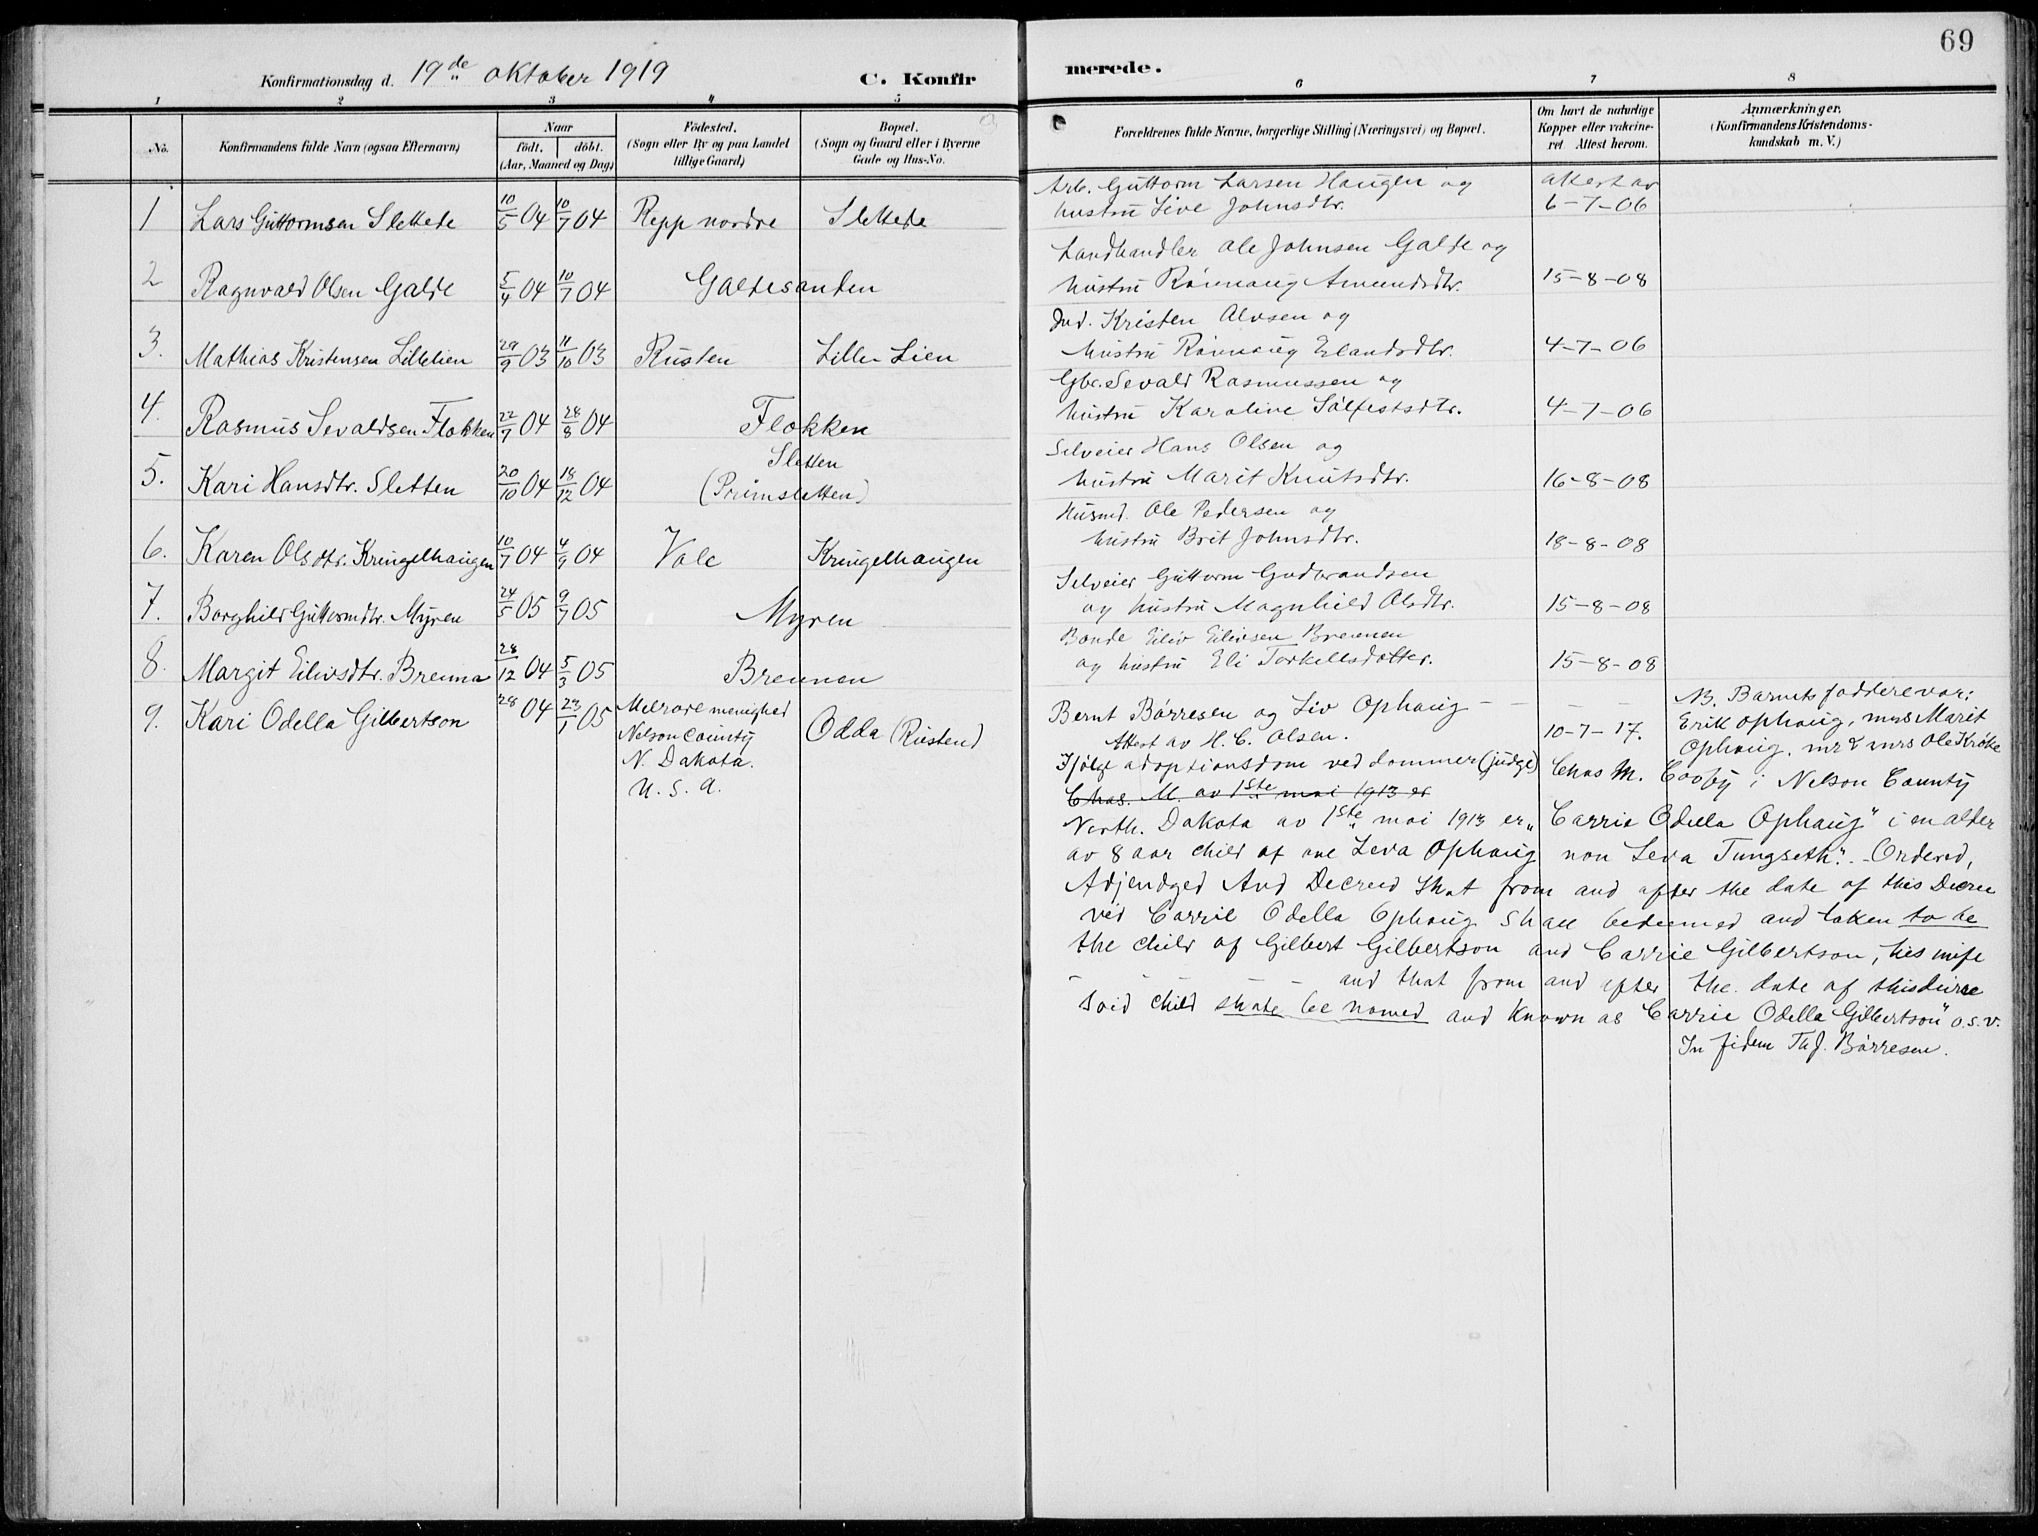 69
Konfirmationsdag d. 19de oktober 1919
C. Konfirmerede.
1 2 3 4 5 6 7 8
No.
Konfirmandens fulde Navn (ogsaa Efternavn)
Naar
født. døbt.
(Aar, Maaned og Dag)
Fødested.
(Sogn eller By og paa Landet
tillige Gaard)
Bopæl.
(Sogn og Gaard eller i Byerne
Gade og Hus-No.
Forældrenes fulde Navne, borgerlige Stilling (Næringsvei) og Bopæl.
Om havt de naturlige
Kopper eller vakcine-
ret. Attest herom.
Anmærkninger.
(Konfirmandens Kristendoms-
kundskab m. V.)
1 Lars Guttormsen Slettede 10/5 04 10/7 04 Repp nordre Slettede
Arb. Guttorm Larsen Haugen og attest av
hustru Live Johnsdtr. 6-7-06
2 Ragnvald Olsen Galde 5/4 04 10/7 04 Galdesanden
Landhandler Ole Johnsen Galde og
hustru Rønnaug Amundsdtr. 15-8-08
3. Mathias Kristensen Lillelien 29/9 03 11/10 03 Rusten Lille Lien
Ind. Kristen Alvsen og
hustru Rønnaug Erlandsdtr. 4-7-06
4. Rasmus Sevaldsen Flokken 22/7 04 28/8 04 Flokken
Gbr. Sevald Rasmussen og
hustru Karoline Sølfestsdtr. 4-7-06
5. Kari Hansdtr. Sletten 20/10 04 18/12 04 Sletten
(Primsletten)
Selveier Hans Olsen og
hustru Marit Knutsdtr. 16-8-08
6. Karen Olsdtr. Kringelhaugen 10/7 04 4/9 04 Vole Kringelhaugen
Husmd. Ole Pedersen og
hustru Brit Johnsdtr. 18-8-08
7. Borghild Guttormdtr. Myren 24/5 05 9/7 05 Myren
Selveier Guttorm Gudbrandsen
og hustru Magnhild Olsdtr. 15-8-08
8. Margit Eilivsdtr. Brenna 28/12 04 5/3 05 Brennen
Bonde Eiliv Eilivsen Brennen
og hustru Eli Torkellsdotter. 15-8-08
9. Kari Odella Gilbertson 28 04 23/1 05 Melrose menighed
Nelson County
N. Dakota.
U. S. A.
Odda (Rusten)
Bernt Børresen og Liv Ophaug - - - -
Attest av H. C. Olsen. 10-7-17.
NB. Barnets faddere var:
Erik Ophaug, mrs Marit
Ophaug. mr & mrs Ole Krøke
Ifølge adoptionsdom ved dommer (judge) Chas M. Cooly i Nelson County
Chas. M. av 1ste mai 1913 er
North. Dakota av 1ste mai 1913 er „Carrie Odella Ophaug" i en alder
av 8 aar child of one Leva Ophaug non Leva Tungseth". - Ordered,
Adjendged And Decreed that from and after the date of this Decree
ved Carrie Odella Ophaug shall bedeemed and taken to be
the child of Gilbert Gilbertson and Carrie Gilbertson, his wife
- - - and that from and after the date of this
said child shall be named and known as Carrie Odella Gilbertson" o.s.v.
In fidem Th J. Børresen.